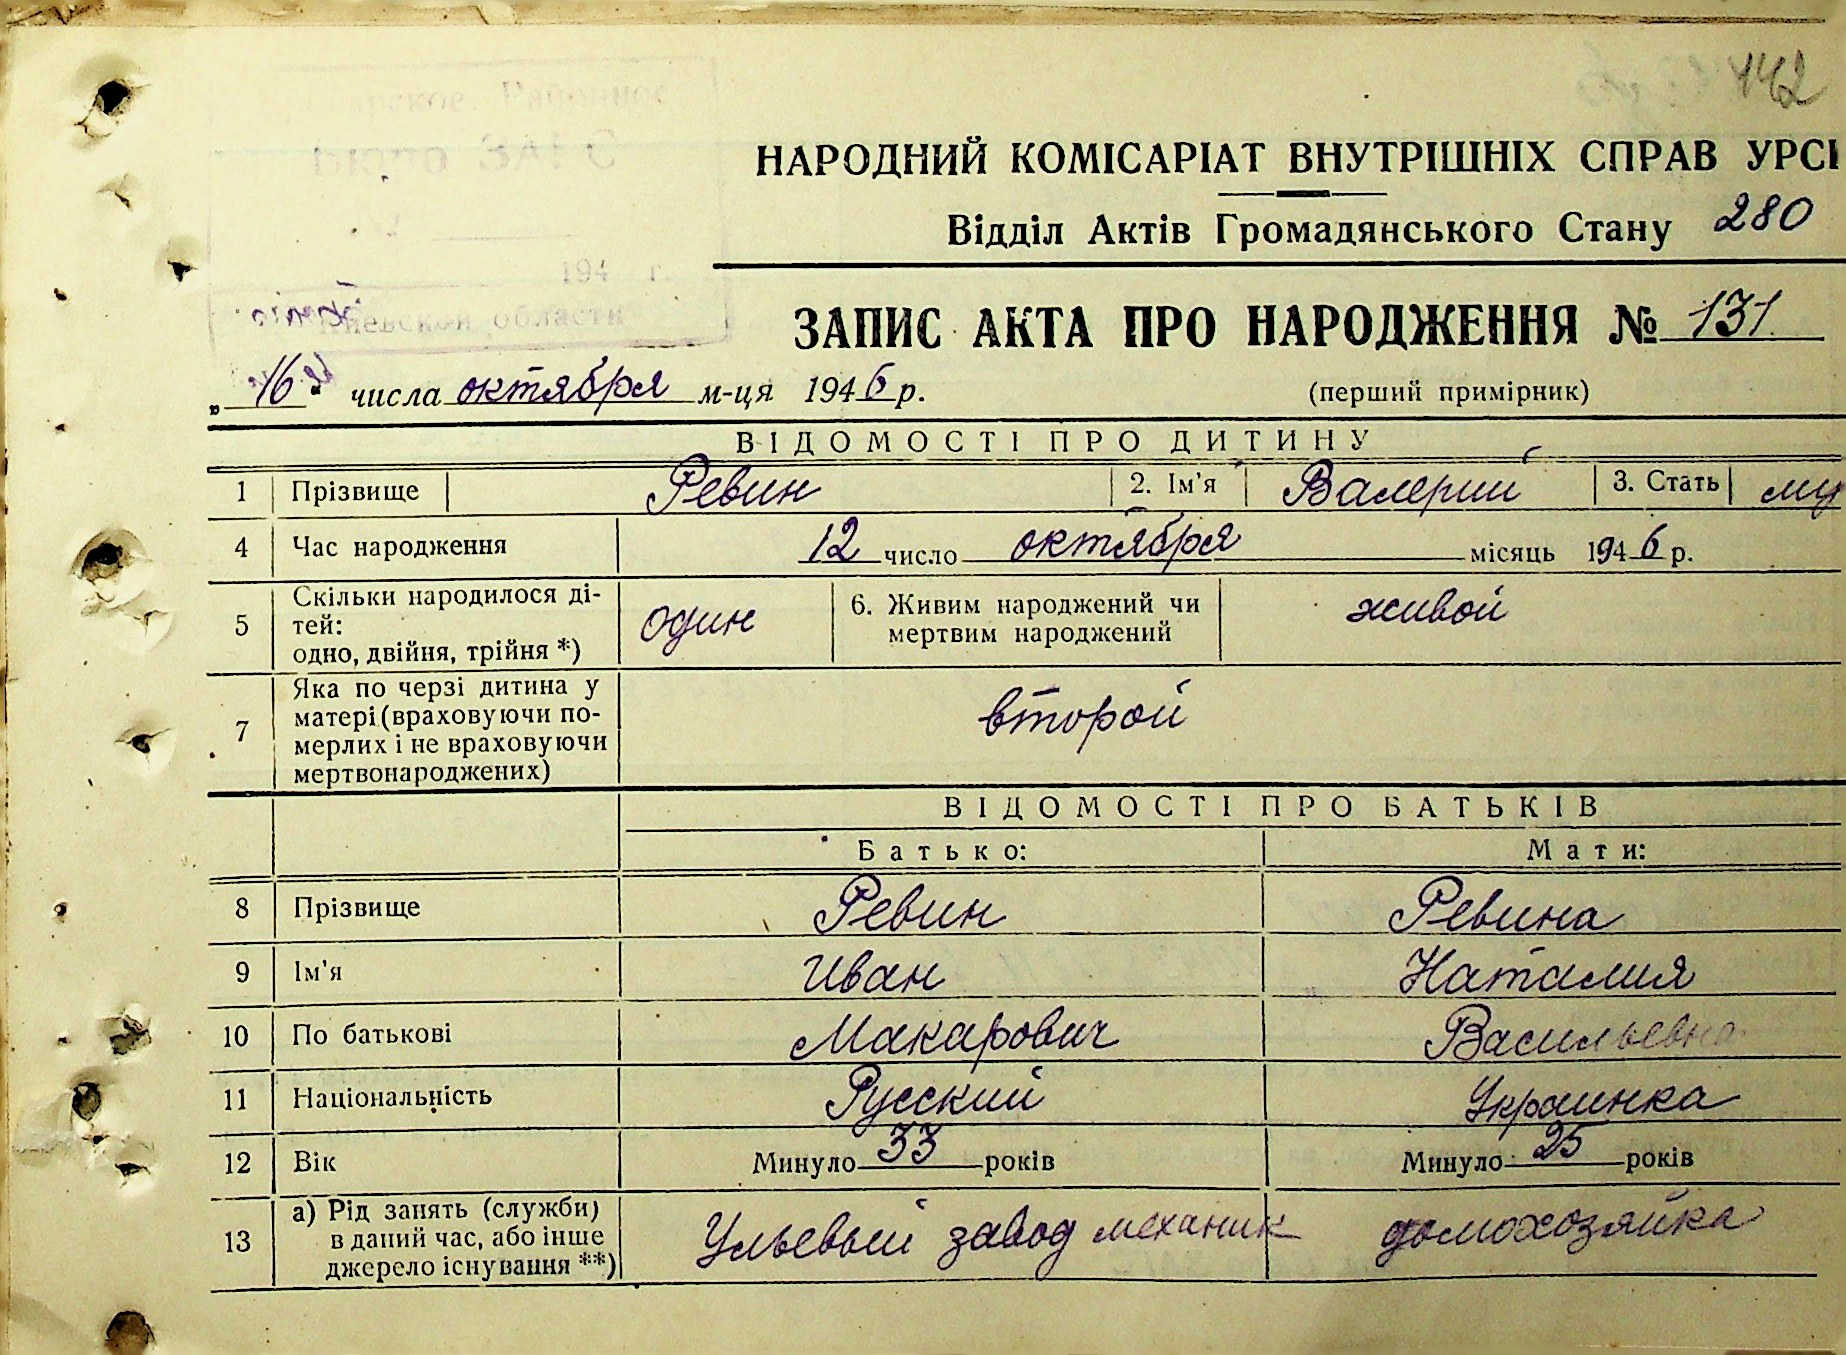 142
Районное
Бюро ЗАГС
194 г.
Киевской области
НАРОДНИЙ КОМІСАРІАТ ВНУТРІШНІХ СПРАВ УРСР
Відділ Актів Громадянського Стану 280
ЗАПИС АКТА ПРО НАРОДЖЕННЯ № 131
„16“ числа октября м-ця 1946 р. (перший примірник)
ВІДОМОСТІ ПРО ДИТИНУ
1 Прізвище Ревин 2. Ім'я Валерий 3. Стать му
4 Час народження 12 число октября місяць 1946 р.
5 Скільки народилося ді-
тей:
одно, двійня, трійня *) один 6. Живим народжений чи
мертвим народжений живой
7 Яка по черзі дитина у
матері (враховуючи по-
мерлих і не враховуючи
мертвонароджених) второй
ВІДОМОСТІ ПРО БАТЬКІВ
Батько: Мати:
8 Прізвище Ревин Ревина
9 Ім'я Иван Наталия
10 По батькові Макарович Васильевна
11 Національність Русский Украинка
12 Вік Минуло 33 років Минуло 25 років
13 а) Рід занять (служби)
в даний час, або інше
джерело існування **) Ульевый завод механик домохозяйка